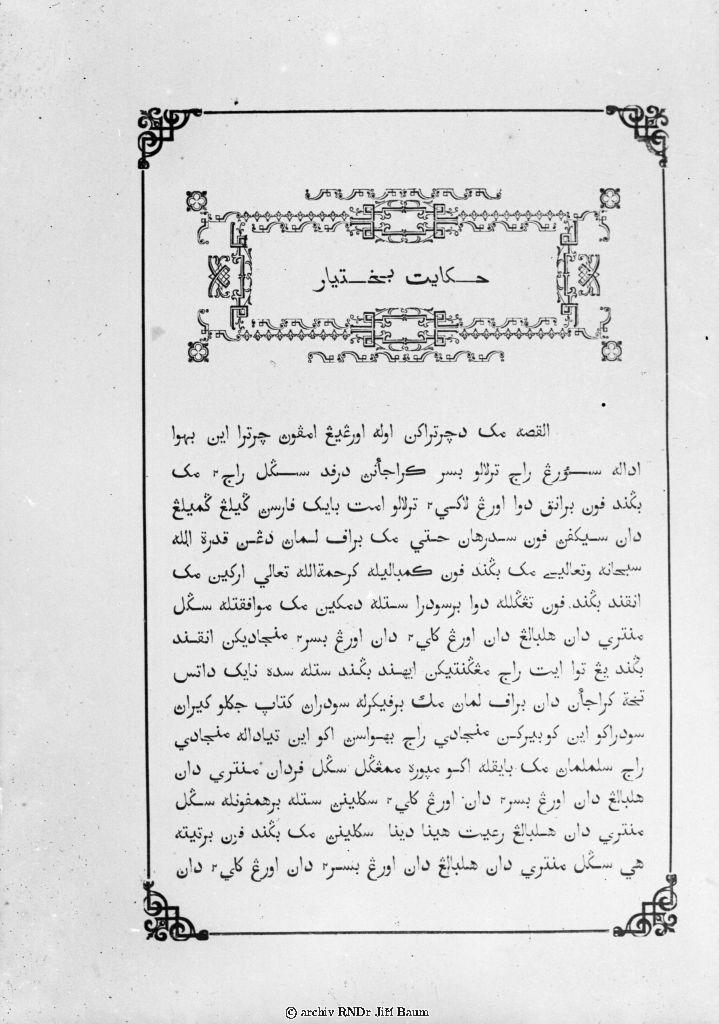 حكايت بختيار
القصه مک دچرتراكن اوله اورڠيڠ امڤون چرترا اين بهوا
اداله سئورڠ راج ترلالو بسر كراجأنن درفد سڬل راج٢ مک
بڬند فون برانق دوا اورڠ لاكي٢ ترلالو امت بايک فارسن ڬيلڠ ڬميلڠ
دان سيكفن فون سدرهان حتي مک براف لمان دڠن قدرة الله
سبحانه وتعالي مک بڬند فون كمباليله كرحمةالله تعالي اركين مک
انقند بڬند فون تڠڬلله دوا برسودرا ستله دمكين مک موافقتله سڬل
منتري دان هلبالڠ دان اورڠ كاي٢ دان اورڠ بسر٢ منجاديكن انقند
بڬند يڠ توا ايت راج مڠڬنتيكن ايهند بڬند ستله سده نايک داتس
تخة كراجأن دان براف لمان مک برفيكرله سودران كتاڤ جكلو كيران
سودراكو اين كوبيركن منجادي راج بهواسن اكو اين تياداله منجادي
راج سلملمان مک بايقله اكو مپوره ممڠڬل سڬل فردان منتري دان
هلبالڠ دان اورڠ بسر٢ دان اورڠ كاي٢ سكلين ستله برهمفونله سڬل
منتري دان هلبالڠ رعيت هينا دينا سكلين مک بڬند فون برتيته
هي سڬل منتري دان هلبالڠ دان اورڠ بسر٢ دان اورڠ كاي٢ دان
© archiv RNDr Jiří Baum